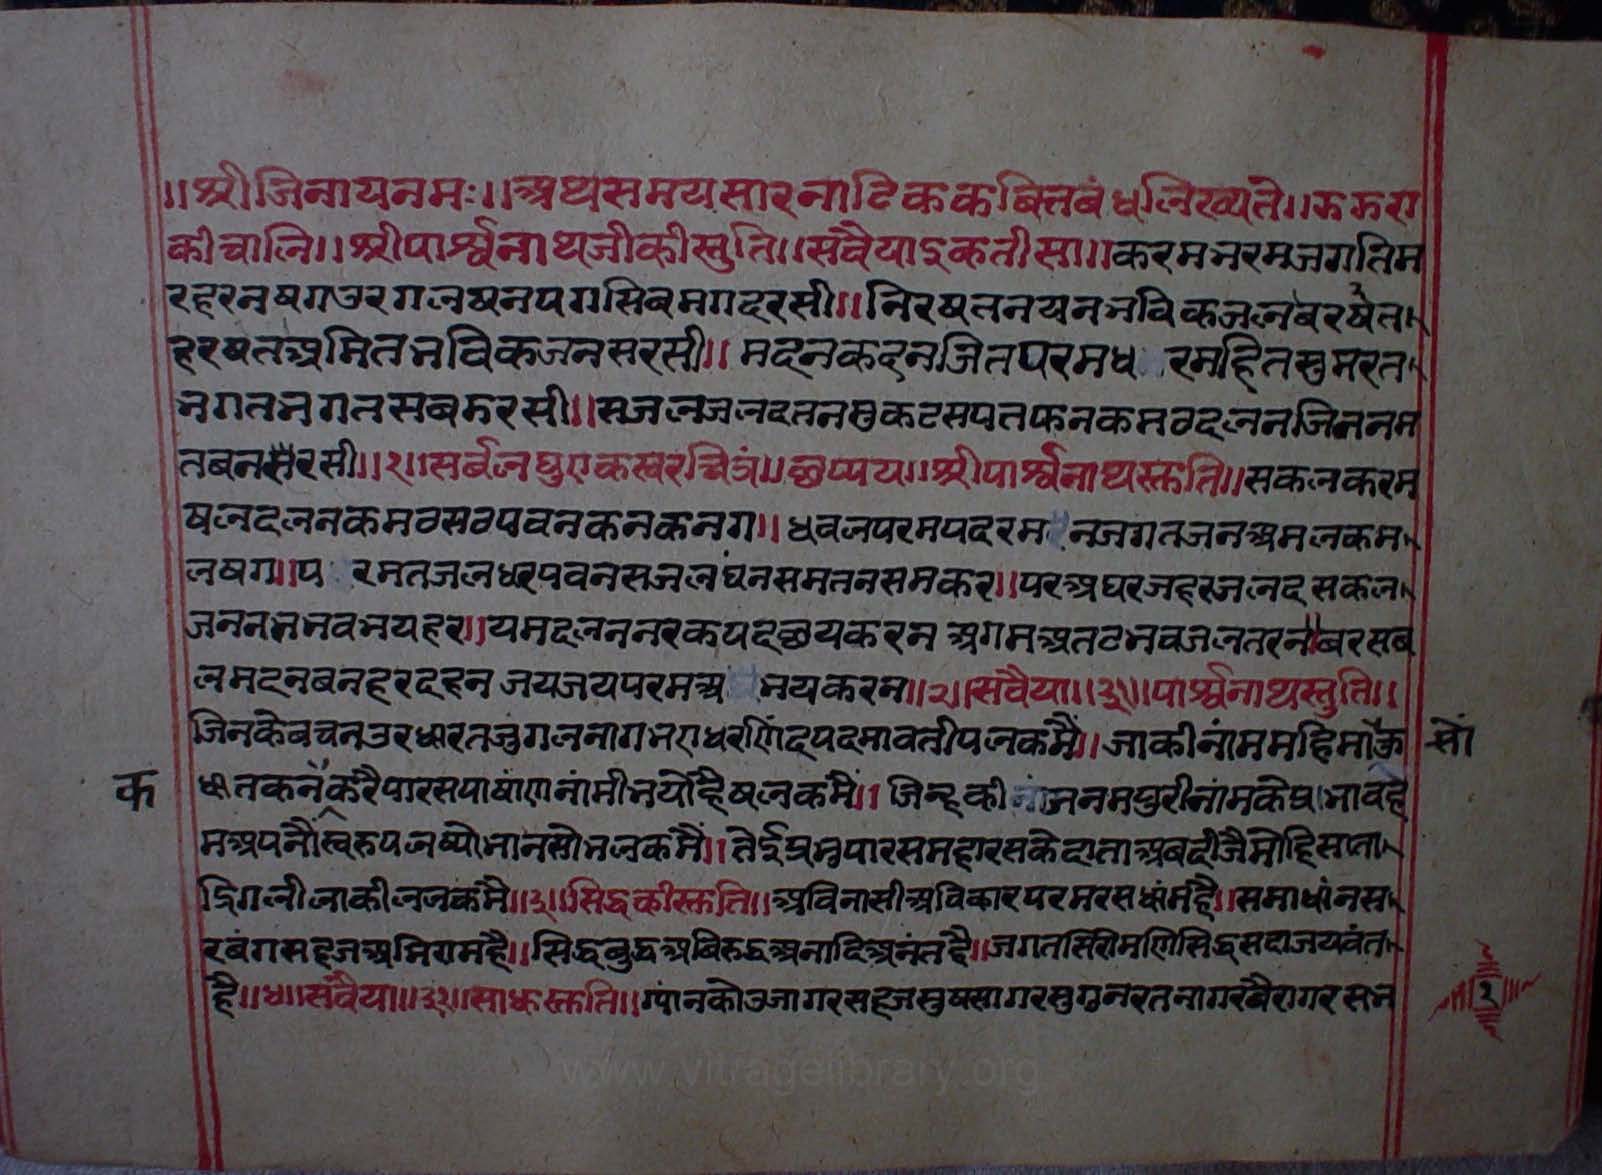 ॥श्रीजिनायनमः॥अथसमयसारनाटिककबित्तबंधलिख्यते॥ऊऊरा
कीचालि॥श्रीपार्श्वनाथजीकीस्तुति॥सवैयाइकतीसा॥करमभरमजगतिम
रहरनषगउरगलषनपगसिवमगदरसी॥निरषतनयनभविकजलबरषेत
हरषतअमितभविकजनसरसी॥मदनकदनजितपरमध रमहितसुमरत
भगतभगतसबऊरसी॥सजलजलदतनमुकटसपतफनकमठदलनजिननम
तबनरसी॥१॥सर्बलघुएकस्वरचित्रं॥छप्पय॥श्रीपार्श्वनाथस्तुति॥सकलकरम
षलदलनकमठसठपवनकनकनग॥धवलपरमपदरम नजगतजनअमलकम
लषग॥प रमतजलधरपवनसजलघंनसमतनसमकर॥परअघरजहरजलदसकल
जननतभवभयहर॥यमदलननरकपदछयकरन अगमअतटभवजलतरनबरसब
लमदनबनहरदहन जयजयपरमअ भयकरन॥२॥सवैया॥३१॥पार्श्वनाथस्तुति॥
जिनकेबचनउरधारतजुगलनागभएधरणिंदपदमावतीपलकमैं॥जाकीनांममहिमासौंकु
धातकनककरैपारसपाषांणनांमीभयोहैषलकमैं॥जिन्हकीजनमपुरीनांमकेप्रभावह
मअपनौंस्वरुपलष्योभानसोभलकमैं॥तेईप्रभुपारसमहारसकेदाताअबदीजैमोहिसाता
द्रिगलीलाकीललकमै॥३॥सिद्धकीस्तुति॥अविनासीअविकारपरमरसधांमहै॥समाधांनस
रबंगसहजअभिरामहै॥सिद्धबुद्धअबिरुद्धअनादिअनंतहै॥जगतसिरोमणिसिद्धसदाजयवंत
है॥४॥सवैया॥३१॥साधस्तुति॥ग्यांनकोउजागरसहजसुषसागरसुगुनरतनागरबैरागरसभ
१